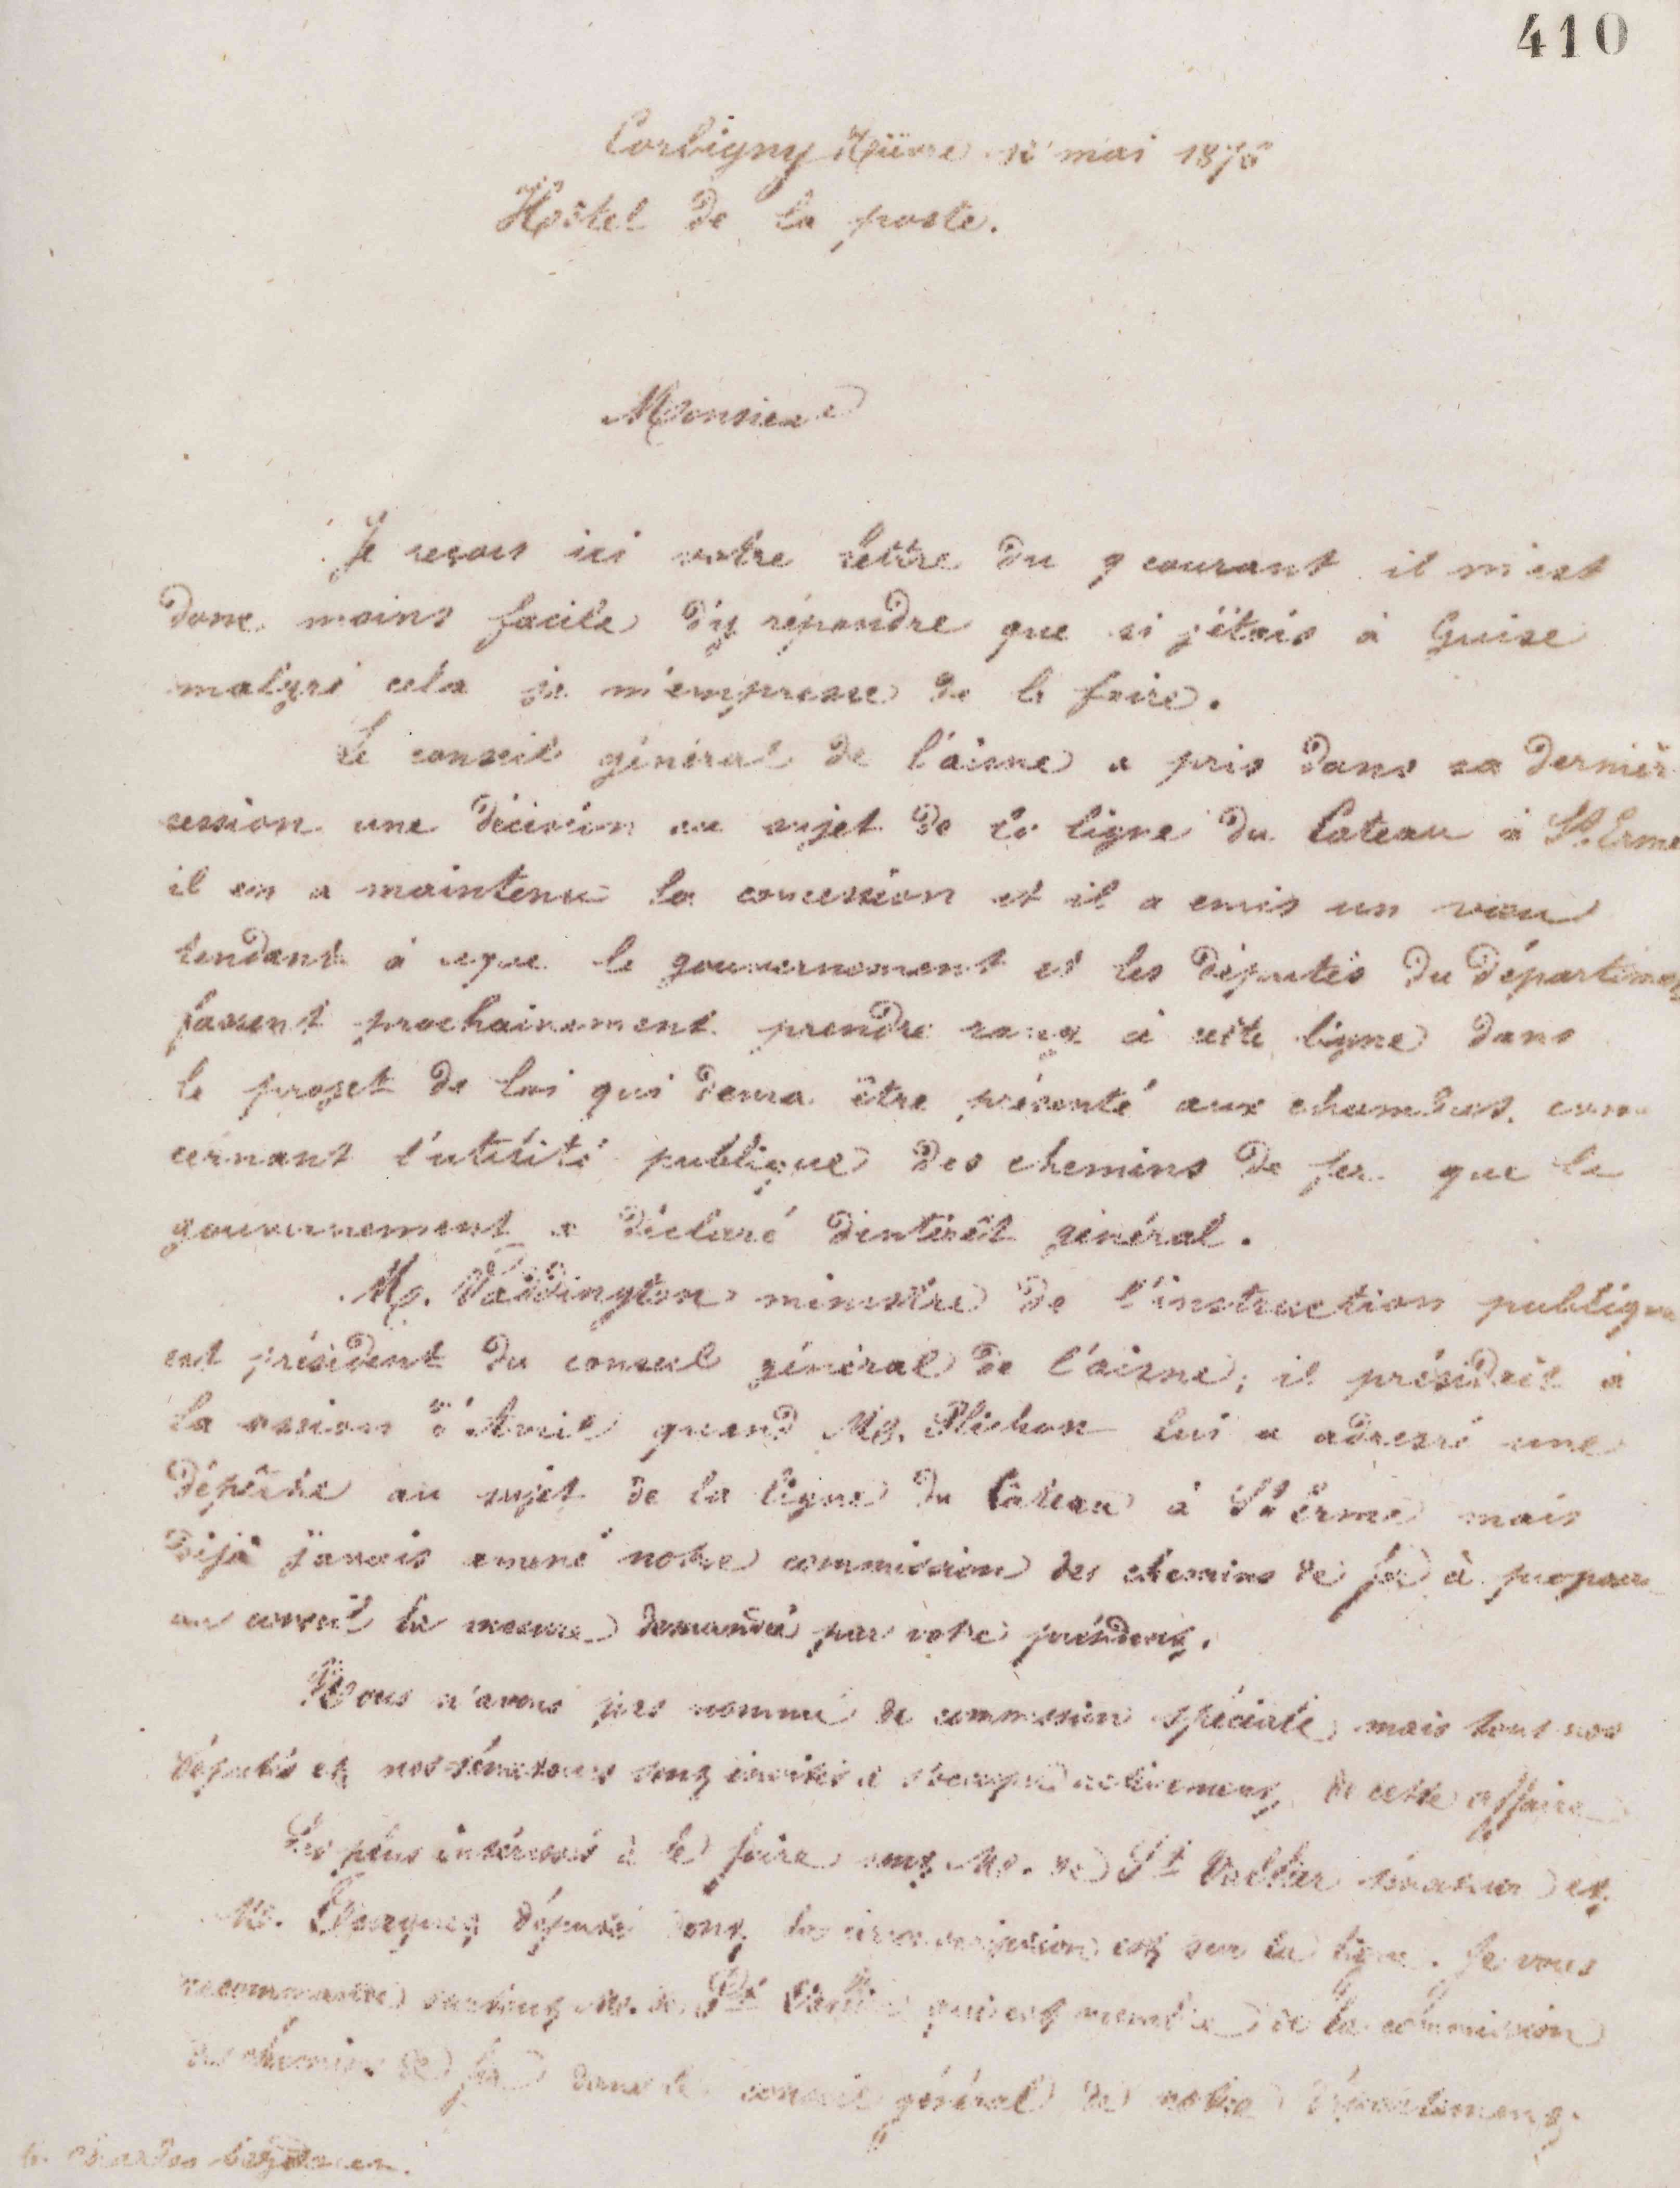 410
Corbigny Nièvre 12 mai 1876
Hôtel de la poste.
Monsieur
Je reçois ici votre lettre du 9 courant il m'est
donc moins facile d'y répondre que si j'étais à Guise
malgré cela je m'empresse de le faire.
Le conseil général de l'aisne a pris dans sa dernièr
session une décision au sujet de la ligne du Cateau à St. Erme
il en a maintenu la concession et il a emis un vœu
tendant à ceque le gouvernement et les députés du départemen
fassent prochainement prendre rang à cette ligne dans
le projet de loi qui devra être présenté aux chambres con
cernant l'utilité publique des chemins de fer que le
gouvernement a déclaré d'intérêt général.
Mr. Vaddington ministre de l'instruction publique
est président du conseil général de l'aisne; il présidait à
la session d'Avril quand Mr. Plichon lui a adressé une
dépêche au sujet de la ligne du Cateau à St Erme mais
déjà j'avais amené notre commission des chemins de fer à proposer
au conseil la mesure demandée par votre président.
Nous n'avons pas nommé de commission spéciale mais tous nos
députés et nos sénateurs sont invités à s'occuper activement de cette affaire
Les plus intéressés à le faire sont Mr. de St Vallier sénateur et
Mr. député dont la circonscription est sur la ligne. Je vous
recommande surtout Mr. de St Vallier qui est membre de la commission
des chemins de fer dans le conseil général de notre département;